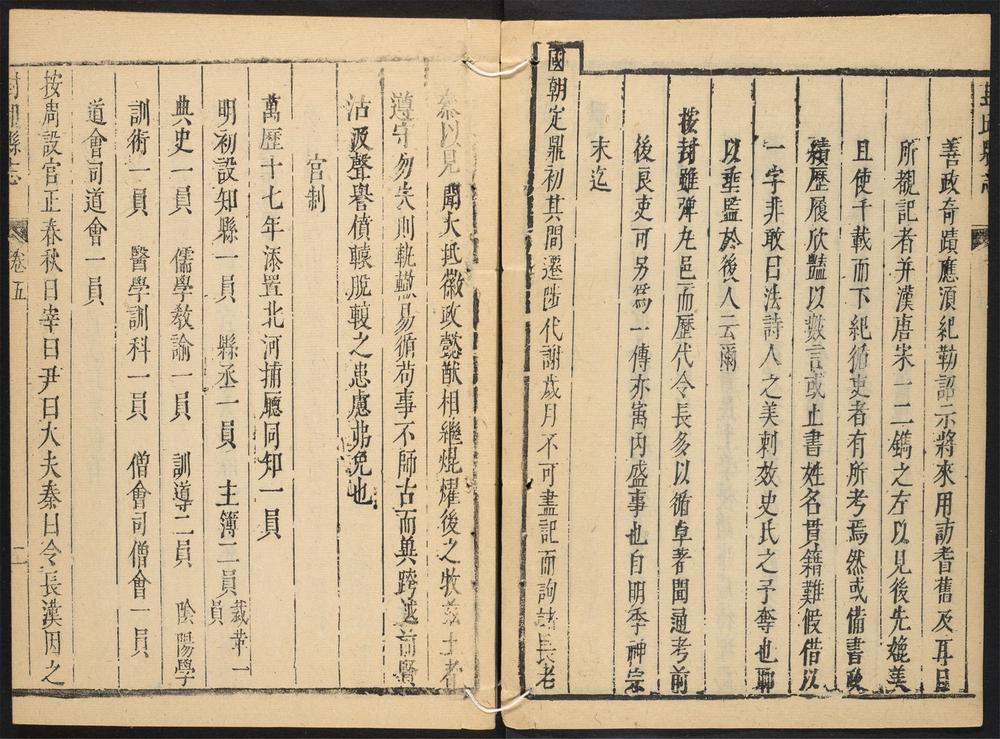 善政奇蹟應須紀勒詔示將來用訪耆舊及耳目
所覩記者并漢唐宋一二鐫之左以見後先媲美
且使千載而下紀循吏者有所考焉然或備書政
績歷履欣豔以數言或止書姓名貫籍難假借以
一字非敢曰法詩人之美刺效史氏之予奪也聊
以垂監於後人云爾
按封雖彈丸邑而歷代令長多以循卓著聞通考前
後良吏可另爲一傳亦寓内盛事也自明季神宗
末迄
國朝定鼎初其間遷陟代謝歲月不可盡記而詢諸長老
叅以見聞大抵徽政懿猷相繼焜燿後之牧茲土者
遵守勿失則軌轍易循苟事不師古而與跨越前賢
沽汲聲譽僨轅脫輹之患慮弗免也
官制
萬歷十七年添置北河捕廳同知一員
明初設知縣一員 縣丞一員 主簿二員裁革一員
典史一員 儒學教諭一員 訓導二員 陰陽學
訓術一員 醫學訓科一員 僧會司僧會一員
道會司道會一員
按周設官正春秋曰宰曰尹曰大夫秦曰令長漢因之
封丘縣志 卷五 二